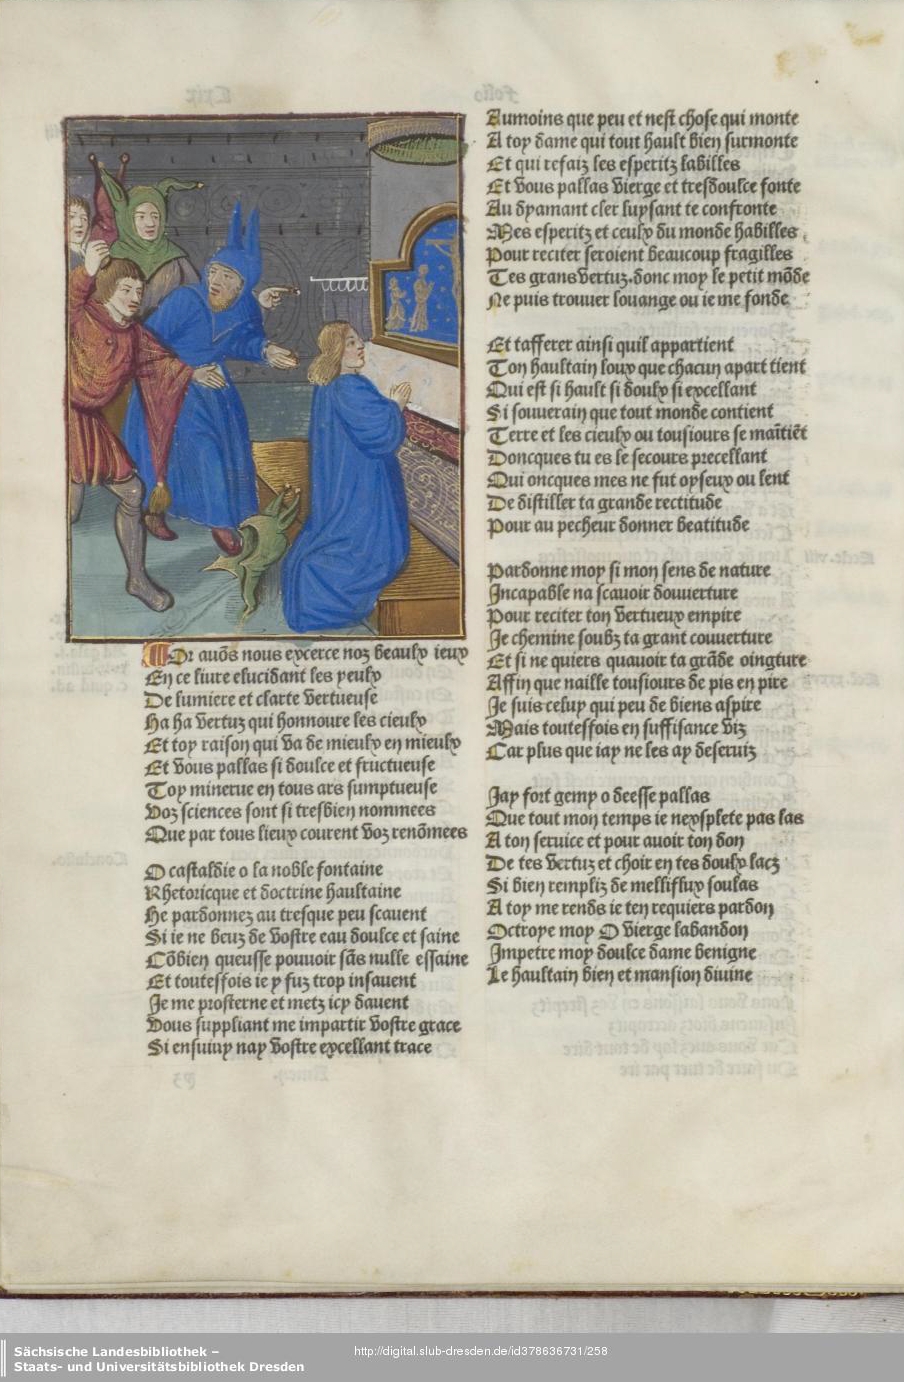 Or auõs nous exerce noz beaulx ieux
En ce liure elucidant les yeulx
De lumiere et clarte vertueuse
Ha ha vertuz qui honnoure les cieulx
Et toy raison qui va de mieulx en mieulx
Et vous pallas si doulce et fructueuse
Toy minerue en tous ars sumptueuse
Voz sciences sont si tresbien nommees
Que par tous lieux courent voz renõmees
O castaldie o la noble fontaine
Rhetoricque et doctrine haultaine
He pardonnez au tresque peu scauent
Si ie ne beuz de vostre eau doulce et saine
Cõbien queusse pouuoir sãs nulle essaine
Et toutesfois ie y fuz trop insauent
Je me prosterne et metz icy dauent
Vous suppliant me impartir vostre grace
Si ensuiuy nay vostre excellant trace
Aumoins que peu et nest chose qui monte
A toy dame qui tout hault bien surmonte
Et qui refaiz les esperitz labilles
Et vous pallas vierge et tresdoulce fonte
Au dyamant cler luysant te confronte
Mes esperitz et ceulx du monde habilles
Pour reciter seroient beaucoup fragilles
Tes grans vertuz.donc moy le petit mõde
Ne puis trouuer louange ou ie me fonde
Et tafferer ainsi quil appartient
Ton haultain loux que chacun apart tient
Qui est si hault si doulx si excellant
Si souuerain que tout monde contient
Terre et les cieulx ou tousiours se maĩtiẽt
Doncques tu es le secours precellant
Qui oncques mes ne fut oyseux ou lent
De distiller ta grande rectitude
Pour au pecheur donner beatitude
Pardonne moy si mon sens de nature
Incapable na scauoir douuerture
Pour reciter ton vertueux empire
Je chemine soubz ta grant couuerture
Et si ne quiers quauoir ta grãde oingture
Affin que naille tousiours de pis en pire
Je suis celuy qui peu de biens aspire
Mais toutesfois en suffisance viz
Car plus que iay ne les ay deseruiz
Jay fort gemy o deesse pallas
Que tout mon temps ie nexsplete pas las
A ton seruice et pour auoir ton don
De tes vertuz et choir en tes doulx lacz
Si bien rempliz de melliflux soulas
A toy me rends ie ten requiers pardon
Octroye moy O vierge labandon
Impetre moy doulce dame benigne
Le haultain bien et mansion diuine
Sächsische Landesbibliothek –
Staats- und Universitätsbibliothek Dresden
http://digital.slub-dresden.de/id378636731/258